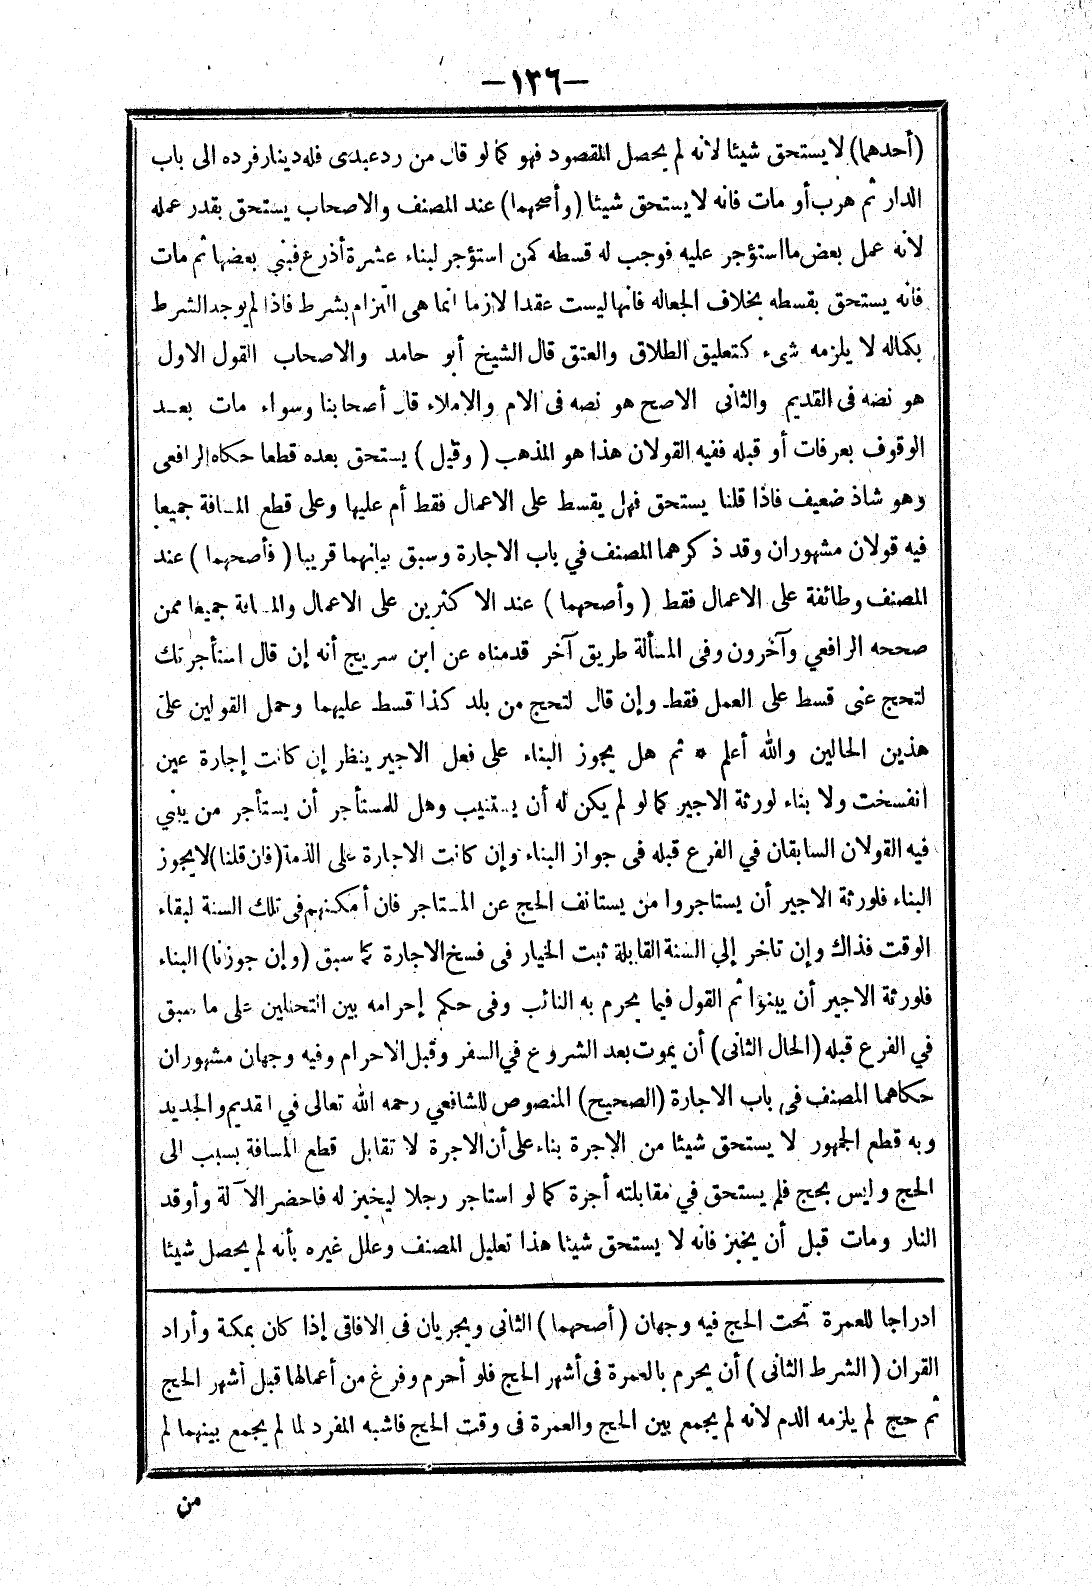 —١٣٦—
(أحدهما) لا يستحق شيئا لانه لم يحصل المقصود فهو كما لو قال من رد عبدى فله دينار فرده الى باب
الدار ثم هرب أو مات فانه لا يستحق شيئا (وأصحهما) عند المصنف والاصحاب يستحق بقدر عمله
لانه عمل بعض ما استؤجر عليه فوجب له قسطه كمن استؤجر لبناء عشرة أذرع فبني بعضها ثم مات
فانه يستحق بقسطه بخلاف الجعاله فانها ليست عقدا لازما انما هى التزام بشرط فاذا لم يوجد الشرط
بكماله لا يلزمه شىء كتعليق الطلاق والعتق قال الشيخ أبو حامد والاصحاب القول الاول
هو نصه فى القديم والثانى الاصح هو نصه فى الام والاملاء قال أصحابنا وسواء مات بعد
الوقوف بعرفات أو قبله ففيه القولان هذا هو المذهب (وقيل) يستحق بعده قطعا حكاه الرافعى
وهو شاذ ضعيف فاذا قلنا يستحق فهل يقسط على الاعمال فقط أم عليها وعلى قطع المسافة جميعا
فيه قولان مشهوران وقد ذكرهما المصنف في باب الاجارة وسبق بيانهما قريبا (فأصحهما) عند
المصنف وطائفة على الاعمال فقط (وأصحهما) عند الاكثرين على الاعمال والمسافة جميعا ممن
صححه الرافعي وآخرون وفى المسألة طريق آخر قدمناه عن ابن سريج أنه إن قال استأجرتك
لتحج عنى قسط على العمل فقط وإن قال لتحج من بلد كذا قسط عليهما وحمل القولين على
هذين الحالين والله أعلم * ثم هل يجوز البناء على فعل الاجير ينظر إن كانت إجارة عين
انفسخت ولا بناء لورثة الاجير كما لو لم يكن له أن يستنيب وهل للمستأجر أن يستأجر من يبنى
فيه القولان السابقان في الفرع قبله فى جواز البناء وإن كانت الاجارة على الذمة (فان قلنا) لا يجوز
البناء فلورثة الاجير أن يستاجروا من يستانف الحج عن المستاجر فان أمكنهم فى تلك السنة لبقاء
الوقت فذاك وإن تاخر إلي السنة القابلة ثبت الخيار فى فسخ الاجارة كما سبق (وإن جوزنا) البناء
فلورثة الاجير أن يبنوا ثم القول فيما يحرم به النائب وفى حكم إحرامه بين التحللين على ما سبق
في الفرع قبله (الحال الثانى) أن يموت بعد الشروع في السفر وقبل الاحرام وفيه وجهان مشهوران
حكاهما المصنف فى باب الاجارة (الصحيح) المنصوص للشافعي رحمه الله تعالى في القديم والجديد
وبه قطع الجمهور لا يستحق شيئا من الاجرة بناء على أن الاجرة لا تقابل قطع المسافة بسبب الى
الحج وليس بحج فلم يستحق في مقابلته أجرة كما لو استاجر رجلا ليخبز له فاحضر الآلة وأوقد
النار ومات قبل أن يخبز فانه لا يستحق شيئا هذا تعليل المصنف وعلل غيره بأنه لم يحصل شيئا
ادراجا للعمرة تحت الحج فيه وجهان (أصحهما) الثانى ويجريان فى الافاقى إذا كان بمكة وأراد
القران (الشرط الثانى) أن يحرم بالعمرة فى أشهر الحج فلو أحرم وفرغ من أعمالها قبل أشهر الحج
ثم حج لم يلزمه الدم لانه لم يجمع بين الحج والعمرة فى وقت الحج فاشبه المفرد لما لم يجمع بينهما لم
من